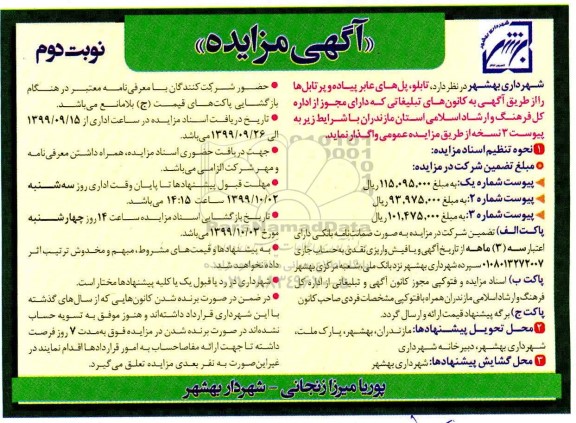 «آگهی مزایده»
نوبت دوم
شهرداری بهشهر در نظر دارد، تابلو، پل‌های عابر پیاده و پرتابل‌ها
را از طریق آگهی به کانون‌های تبلیغاتی که دارای مجوز از اداره
کل فرهنگ و ارشاد اسلامی استان مازندران با شرایط زیر به
پیوست ۳ نسخه از طریق مزایده عمومی واگذار نماید.
۱ نحوه تنظیم اسناد مزایده:
مبلغ تضمین شرکت در مزایده:
پیوست شماره یک: به مبلغ ۱۱۵،۰۹۵،۰۰۰ ریال
پیوست شماره ۲: به مبلغ ۹۳،۹۷۵،۰۰۰ ریال
پیوست شماره ۳: به مبلغ ۱۰۱،۴۷۵،۰۰۰ ریال
پاکت الف) تضمین شرکت در مزایده به صورت ضمانت‌نامه بانکی دارای
اعتبار سه (۳) ماهه از تاریخ آگهی و یا فیش واریزی نقدی به حساب جاری
سپرده شهرداری بهشهر نزد بانک ملی شعبه مرکزی بهشهر
پاکت ب) اسناد مزایده و فتوکپی مجوز کانون آگهی و تبلیغاتی از اداره کل
فرهنگ و ارشاد اسلامی مازندران همراه با فتوکپی مشخصات فردی صاحب کانون
پاکت ج) برگه پیشنهاد قیمت ارائه و ارسال گردد.
۲ محل تحویل پیشنهادها: مازندران، بهشهر، پارک ملت،
شهرداری بهشهر، دبیرخانه شهرداری
۳ محل گشایش پیشنهادها: شهرداری بهشهر
حضور شرکت‌کنندگان با معرفی‌نامه معتبر در هنگام
بازگشایی پاکت‌های قیمت (ج) بلامانع می‌باشد.
تاریخ دریافت اسناد مزایده در ساعت اداری از ۱۳۹۹/۰۹/۱۵
الی ۱۳۹۹/۰۹/۲۶ می‌باشد.
جهت دریافت حضوری اسناد مزایده، همراه داشتن معرفی‌نامه
و مهر شرکت الزامی می‌باشد.
مهلت قبول پیشنهادها تا پایان وقت اداری روز سه‌شنبه
۱۳۹۹/۱۰/۰۲ ساعت ۱۴:۱۵ می‌باشد.
تاریخ بازگشایی اسناد مزایده ساعت ۱۴ روز چهارشنبه
مورخ ۱۳۹۹/۱۰/۰۳ می‌باشد.
به پیشنهادها و قیمت‌های مشروط، مبهم و مخدوش ترتیب اثر
داده نخواهد شد.
شهرداری در رد یا قبول یک یا کلیه پیشنهادها مختار است.
در ضمن در صورت برنده شدن کانون‌هایی که از سال‌های گذشته
با این شهرداری قرارداد داشته‌اند و هنوز موفق به تسویه حساب
نشده‌اند در صورت برنده شدن در مزایده فوق به‌مدت ۷ روز فرصت
داشته تا جهت ارائه مفاصاحساب به امور قراردادها اقدام نمایند در
غیر این‌صورت به نفر بعدی مزایده تعلق می‌گیرد.
پوریا میرزا زنجانی - شهردار بهشهر